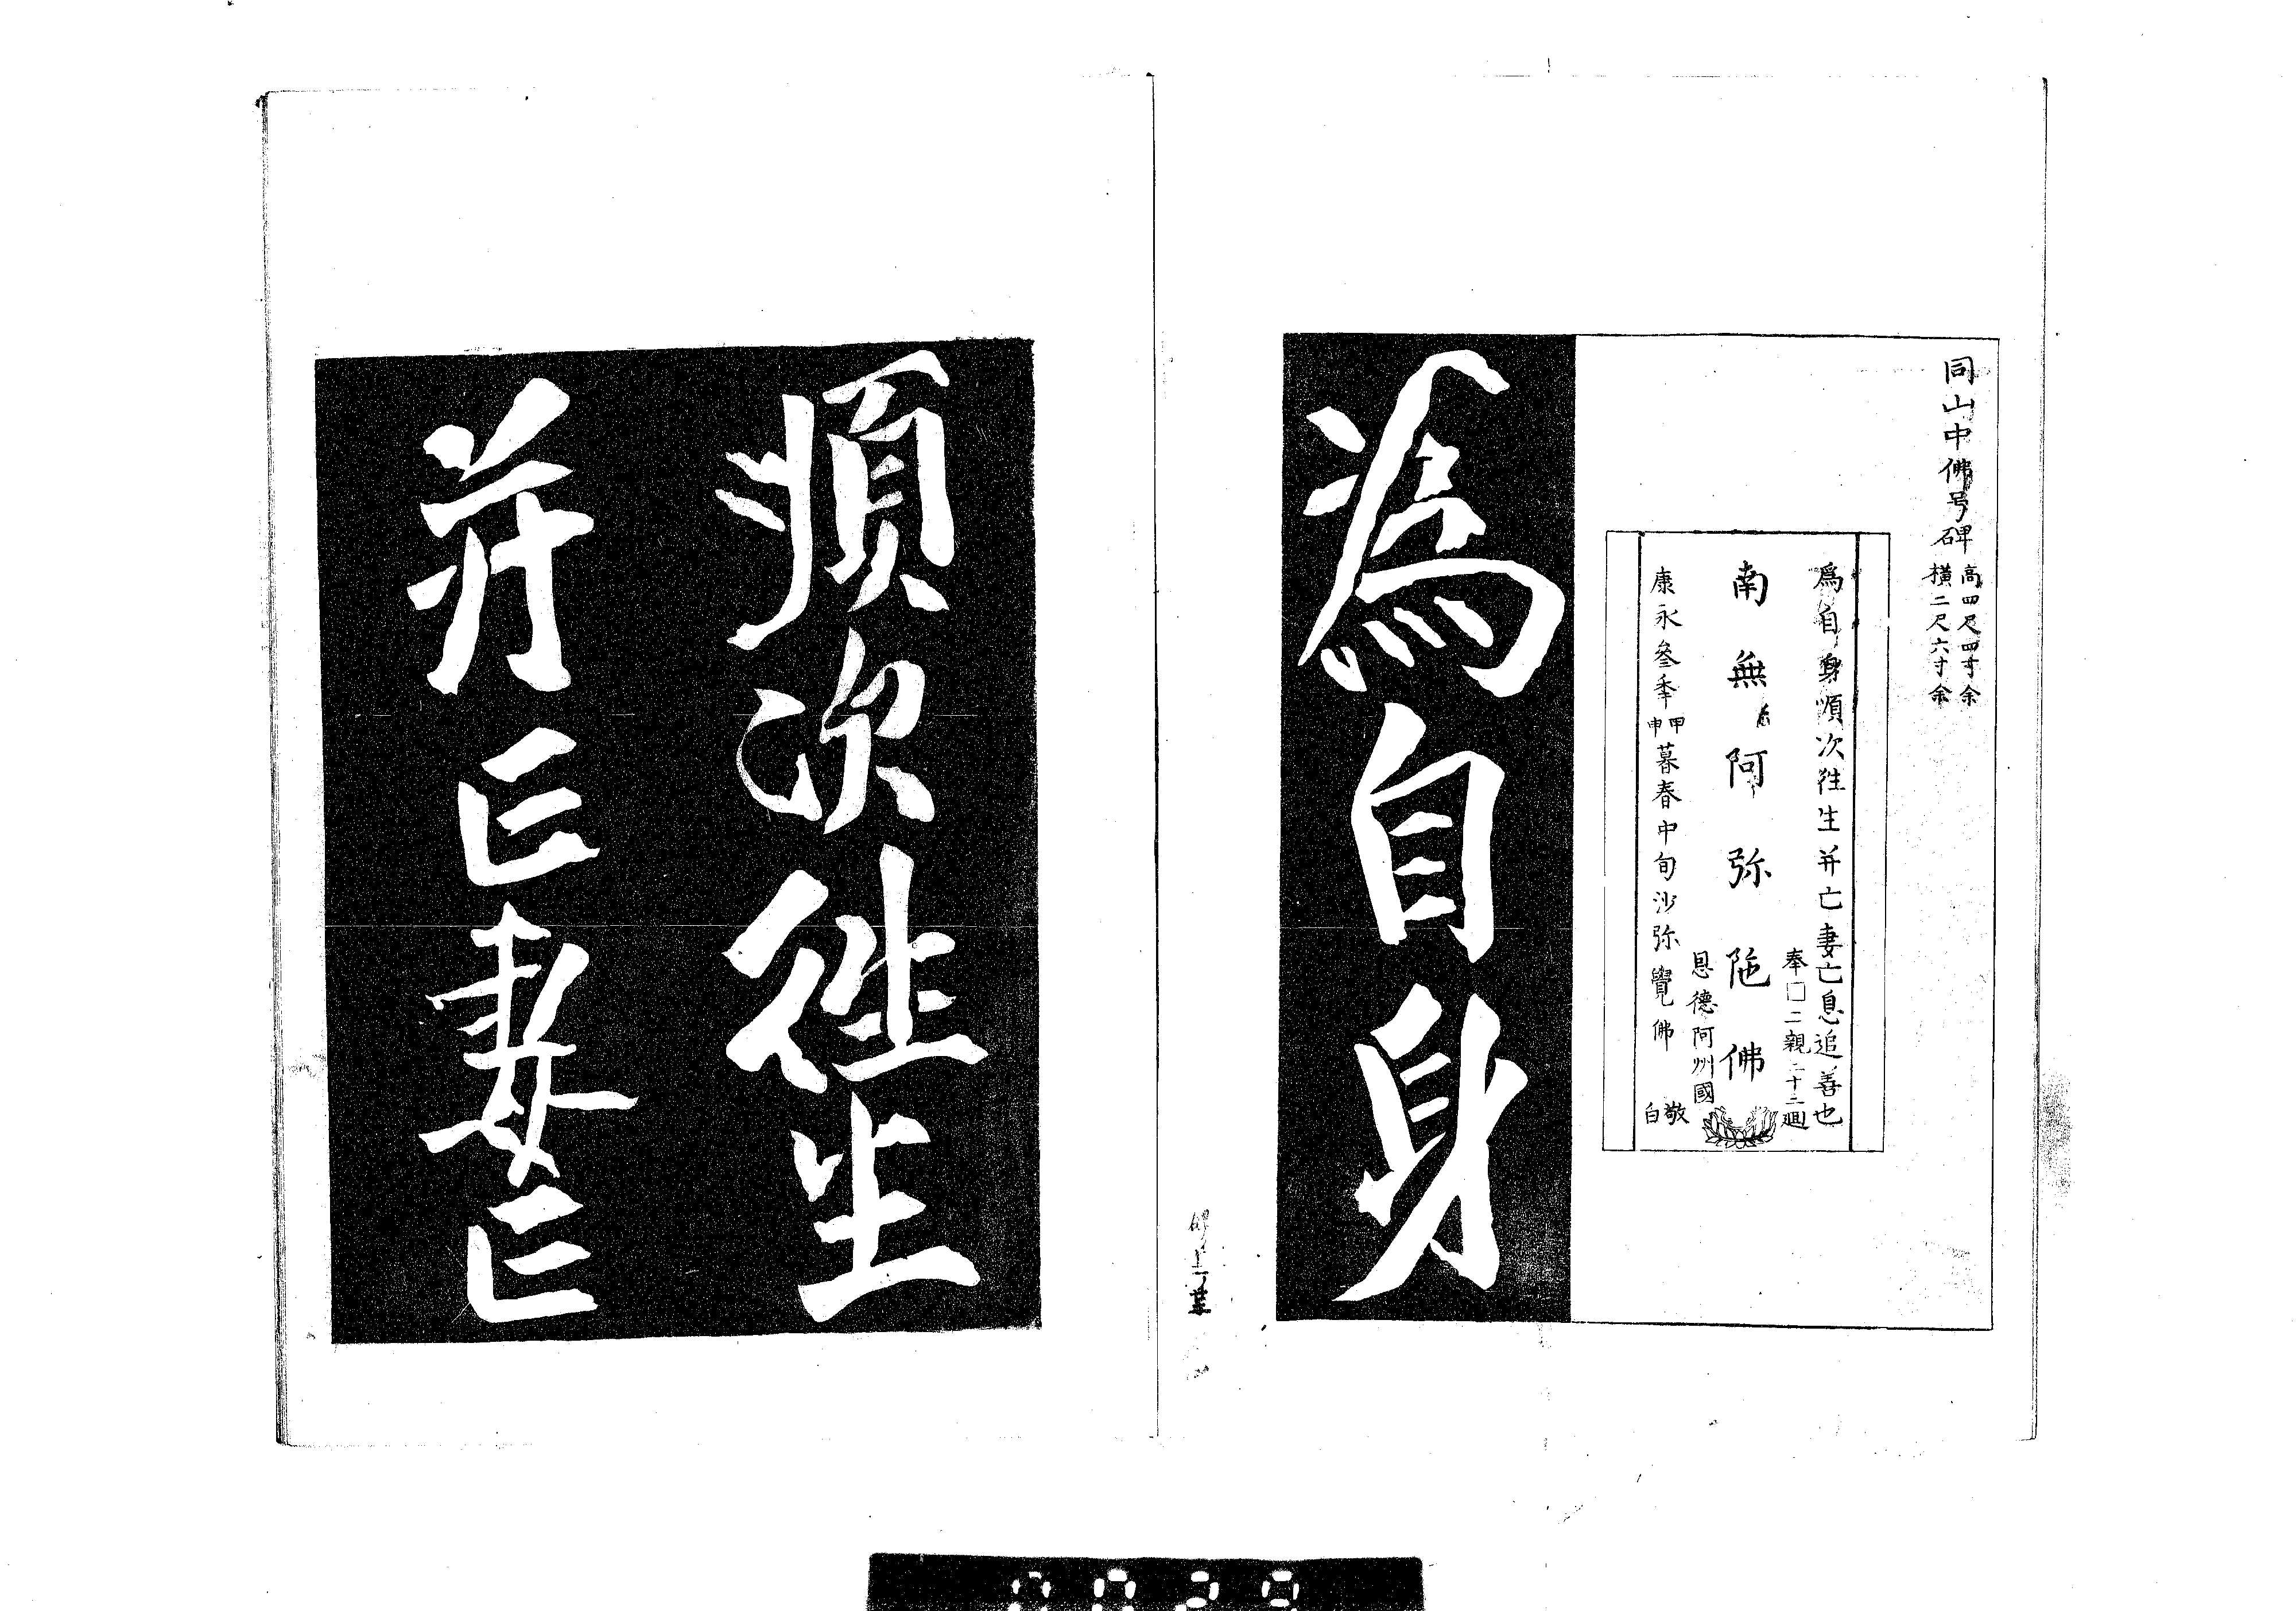 同山中佛号碑
高四尺四寸余
横二尺六寸余
爲自身順次徃生并亡妻亡息追善也
奉□二親二十二廻
南無阿弥陀佛
恩德阿州國
康永叄季甲申暮春中旬沙弥覺佛
敬白
爲自身
順次徃生
并亡妻亡